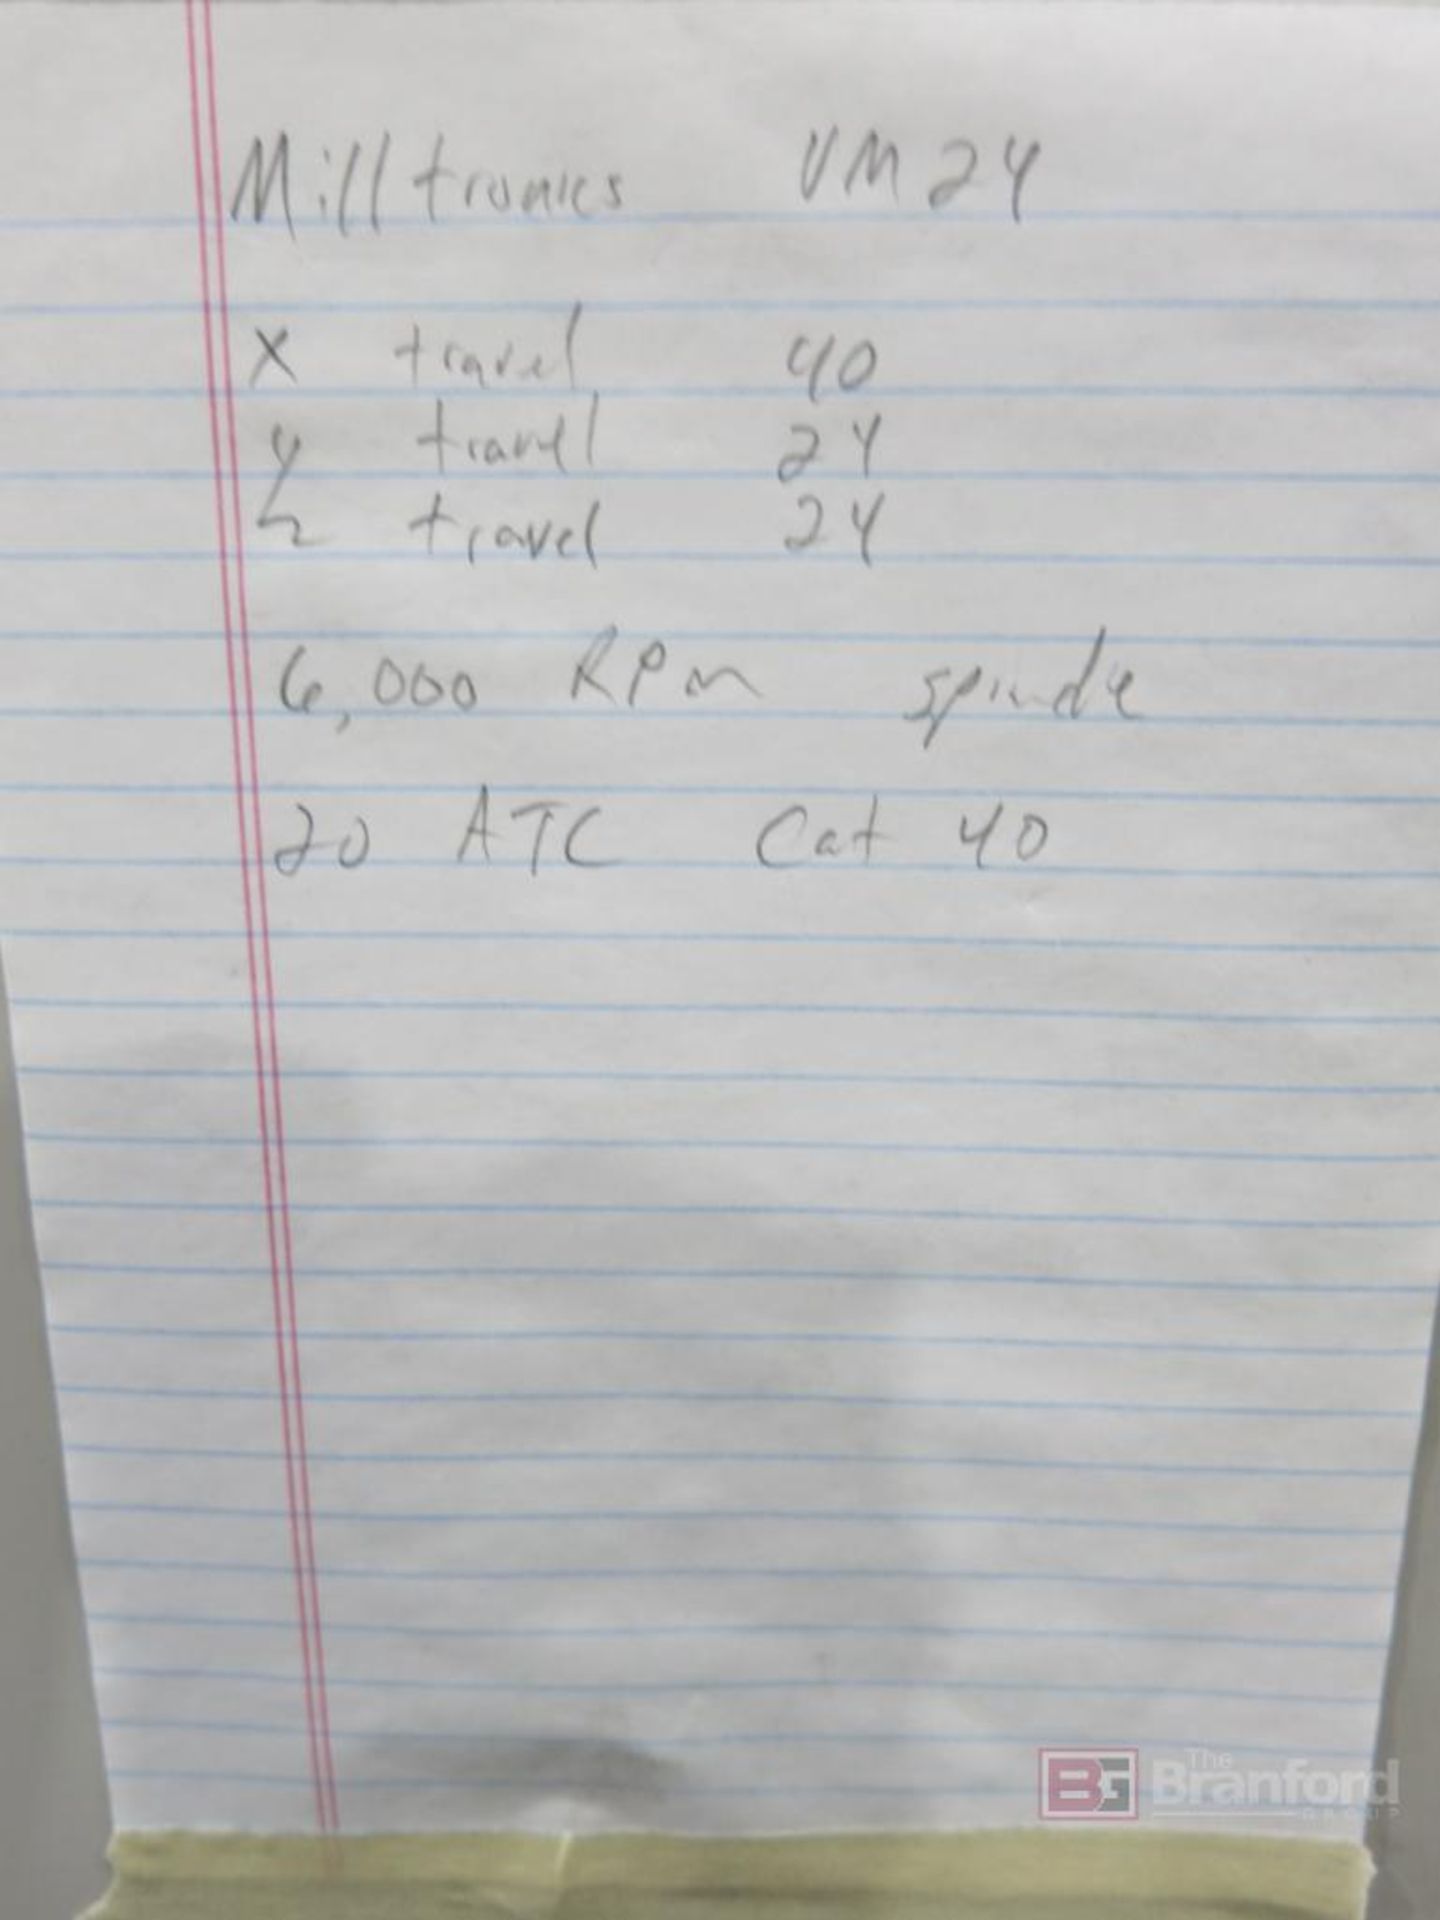 Milltronics VM24
X travel 40
y travel 24
Z travel 24
6,000 RPM spindle
20 ATC Cat 40
BG The Branford GROUP